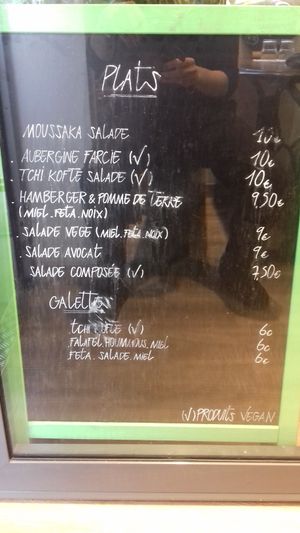 PLATS
MOUSSAKA SALADE 10€
. AUBERGINE FARCIE (√) 10€
. TCHI KOFTE SALADE (√) 10€
. HAMBERGER & POMME DE TERRE 9,50€
(MIEL.FETA.NOIX)
. SALADE VEGE (MIEL.FETA.NOIX) 9€
. SALADE AVOCAT 9€
SALADE COMPOSÉE (√) 7,50€
GALETTES
TCHI KOFTE (√) 6€
FALAFEL.HOUMMOUS.MIEL 6€
FETA.SALADE.MIEL 6€
(√) PRODUITS VEGAN